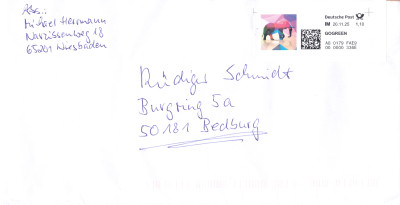 Abs.:
Michael Herrmann
Narzissenweg 18
65201 Wiesbaden
Deutsche Post
IM 20.11.25 1,10
GOGREEN
A0 0179 FAE9
00 0000 3386
Rüdiger Schmidt
Burgring 5a
50181 Bedburg